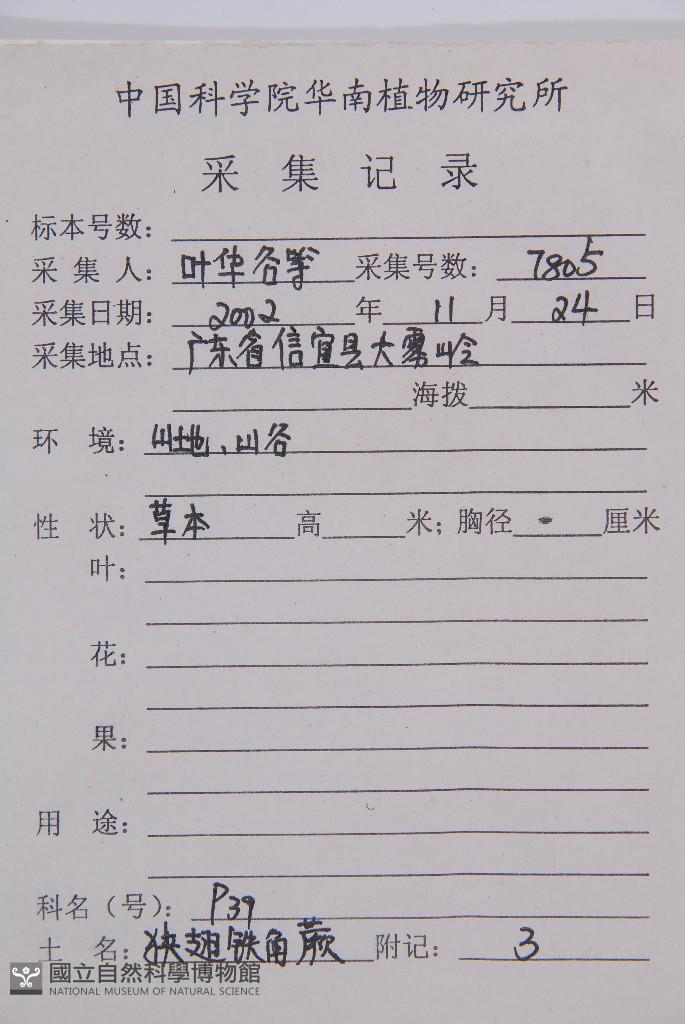 中国科学院华南植物研究所
采 集 记 录
标本号数：
采 集 人：叶华谷等 采集号数：7805
采集日期：2002 年 11 月 24 日
采集地点：广东省信宜县大雾岭
海拨 米
环 境：山地、山谷
性 状：草本 高 米；胸径 - 厘米
叶：
花：
果：
用 途：
科名（号）：P39
土 名：狭翅铁角蕨 附记：3
國立自然科學博物館
NATIONAL MUSEUM OF NATURAL SCIENCE